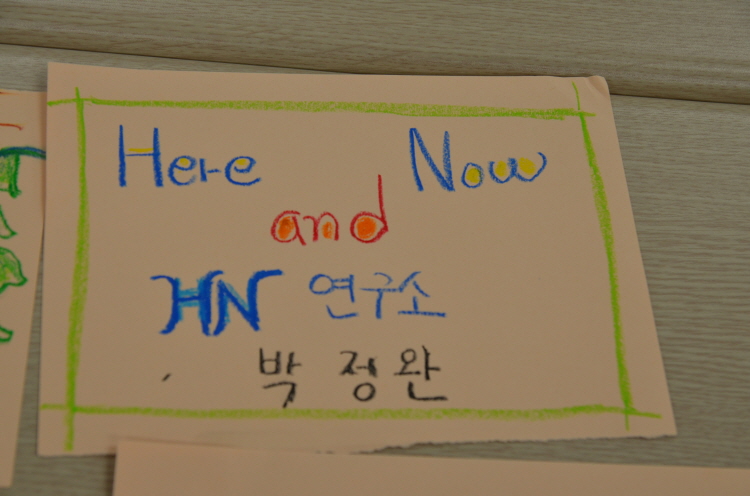 Here Now
and
HN 연구소
박정완